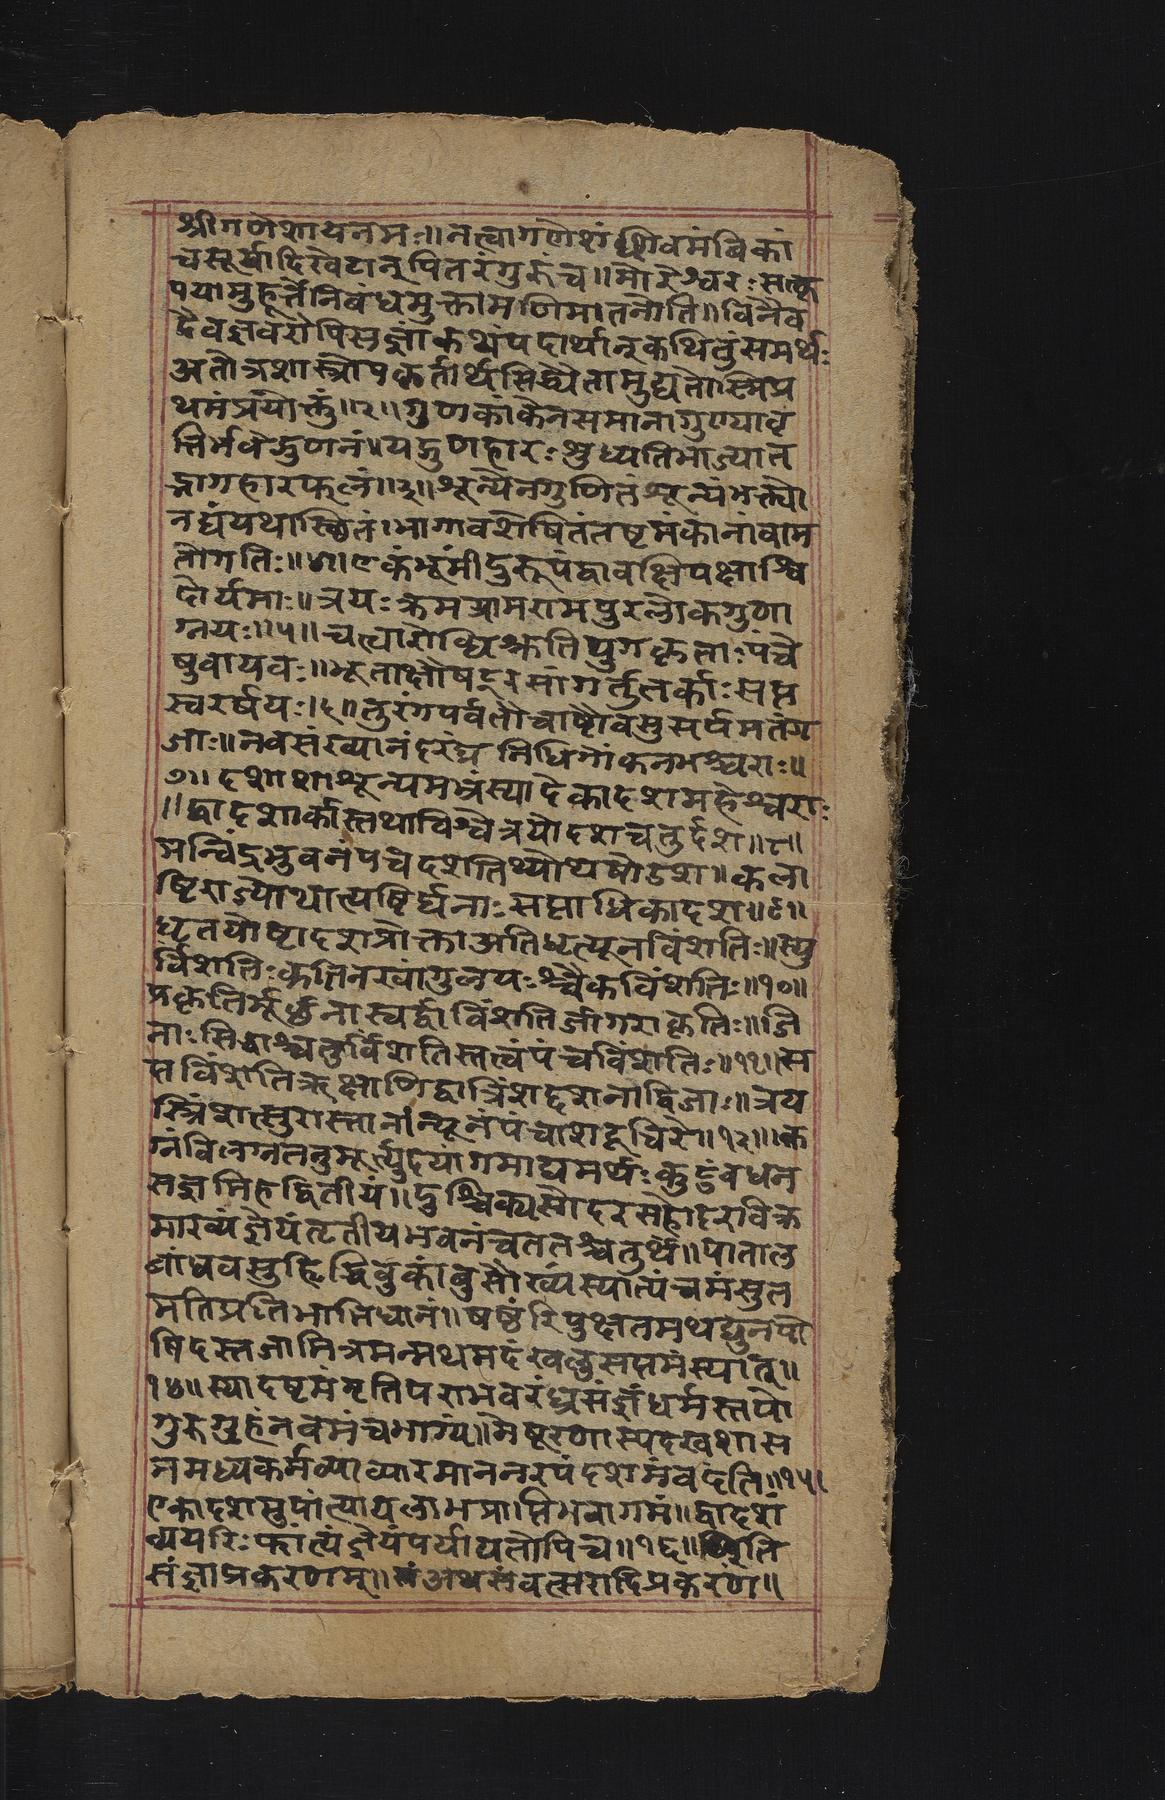 श्रीगणेशायनमः॥नत्वागणेशंशिवमंबिकां
चसूर्यादिखेटान्पितरंगुरूंच॥मोरेश्वरःसत्कृ
पयामुहूर्तेनिबंधमुक्तामणिमातनोति॥विनैव
दैवज्ञवरोपिसंज्ञांकथंपदार्थान्कथितुंसमर्थः
अतोत्रशास्त्रोपकृतार्थसिद्ध्यैतामुद्यतोस्मिप्र
थमंप्रयोक्तुं॥२॥गुणकांकेनसमानागुण्यावृ
त्तिर्भवेद्गुणनं॥यद्गुणहारःशुध्यतिभाज्यात
द्भागहारफलं॥३॥शून्येनगुणितंशून्यंभक्त्यो
नघ्नंयथास्छितं।भागावशेषितंतष्टमंकानांवाम
तोगतिः॥४॥एकंभूमींदुरूपंद्वावक्षिपक्षाश्वि
दोर्यमाः॥त्रयःक्रमग्रामरामपुरलोकगुणा
ग्नयः॥५॥चत्वारोब्धिश्रुतियुगकृताःपंचे
षुवायवः॥भूताक्षौषट्रसांगर्तुतर्काःसप्त
स्वरर्षयः।६॥तुरंगपर्वतौचाष्टौवसुसर्पमतंग
जाः॥नवसंख्यानंदरंध्रनिधिगोंकनभश्चराः॥
७॥दशाशाशून्यमभ्रंस्यादेकादशमहेश्वराः
॥द्वादशार्कास्तथाविश्वेत्रयोदशचतुर्दश॥८॥
मन्विंद्रभुवनंपंचदशतिथ्योथषोडश॥कला
ष्टिराज्योथात्यष्टिर्घनाःसप्ताधिकादश॥९॥
धृतयोष्टादशप्रोक्ताअतिधृत्यूनविंशतिः॥स्यु
र्विंशतिःकृतिनखांगुलयःश्चैकविंशतिः॥१०॥
प्रकृतिर्मूर्छनास्वर्द्वाविंशतिर्जागराकृतिः॥जि
नाःसिद्धाश्चतुर्विंशतिस्तत्वंपंचविंशतिः॥११॥स
प्तविंशतिऋक्षाणिद्वात्रिंशद्दशनाद्विजाः॥त्रय
स्त्रिंशात्सुरास्तानांन्यूनंपंचाशदूधिरे॥१२॥॥ल
ग्नंविलग्नतनुमूर्त्युदयांगमाद्यमर्थःकुटुंबधन
सद्मनिहद्वितीयं॥दुश्चिक्यसोदरसहोदरविक्र
माख्यंज्ञेयंतृतीयभवनंचततश्चतुर्थं॥पाताल
बांधवसुहृद्धिबुकांबुसौख्यंस्यात्पंचमंसुत
मतिप्रतिभाभिधानं॥षष्ठंरिपुक्षतमथद्युनयो
षिदस्तजामित्रमन्मथमदंखलुसप्तमंस्यात्॥
१४॥स्यादष्टमंमृतिपराभवरंध्रसंज्ञंधर्मस्तपो
गुरुगृहंनवमंचभाग्यं॥मेषूरणास्पदखशास
नमध्यकर्मव्याव्यारमाननरपंदशमंवदंति॥१५।
एकादशस्तुपांत्यायलाभप्राप्तिभवागमं॥द्वादशं
व्ययरिःफांत्यंज्ञेयंपर्यायतोपिच॥१६॥इति
संज्ञाप्रकरणम्॥अथसंवत्सरादिप्रकरण॥